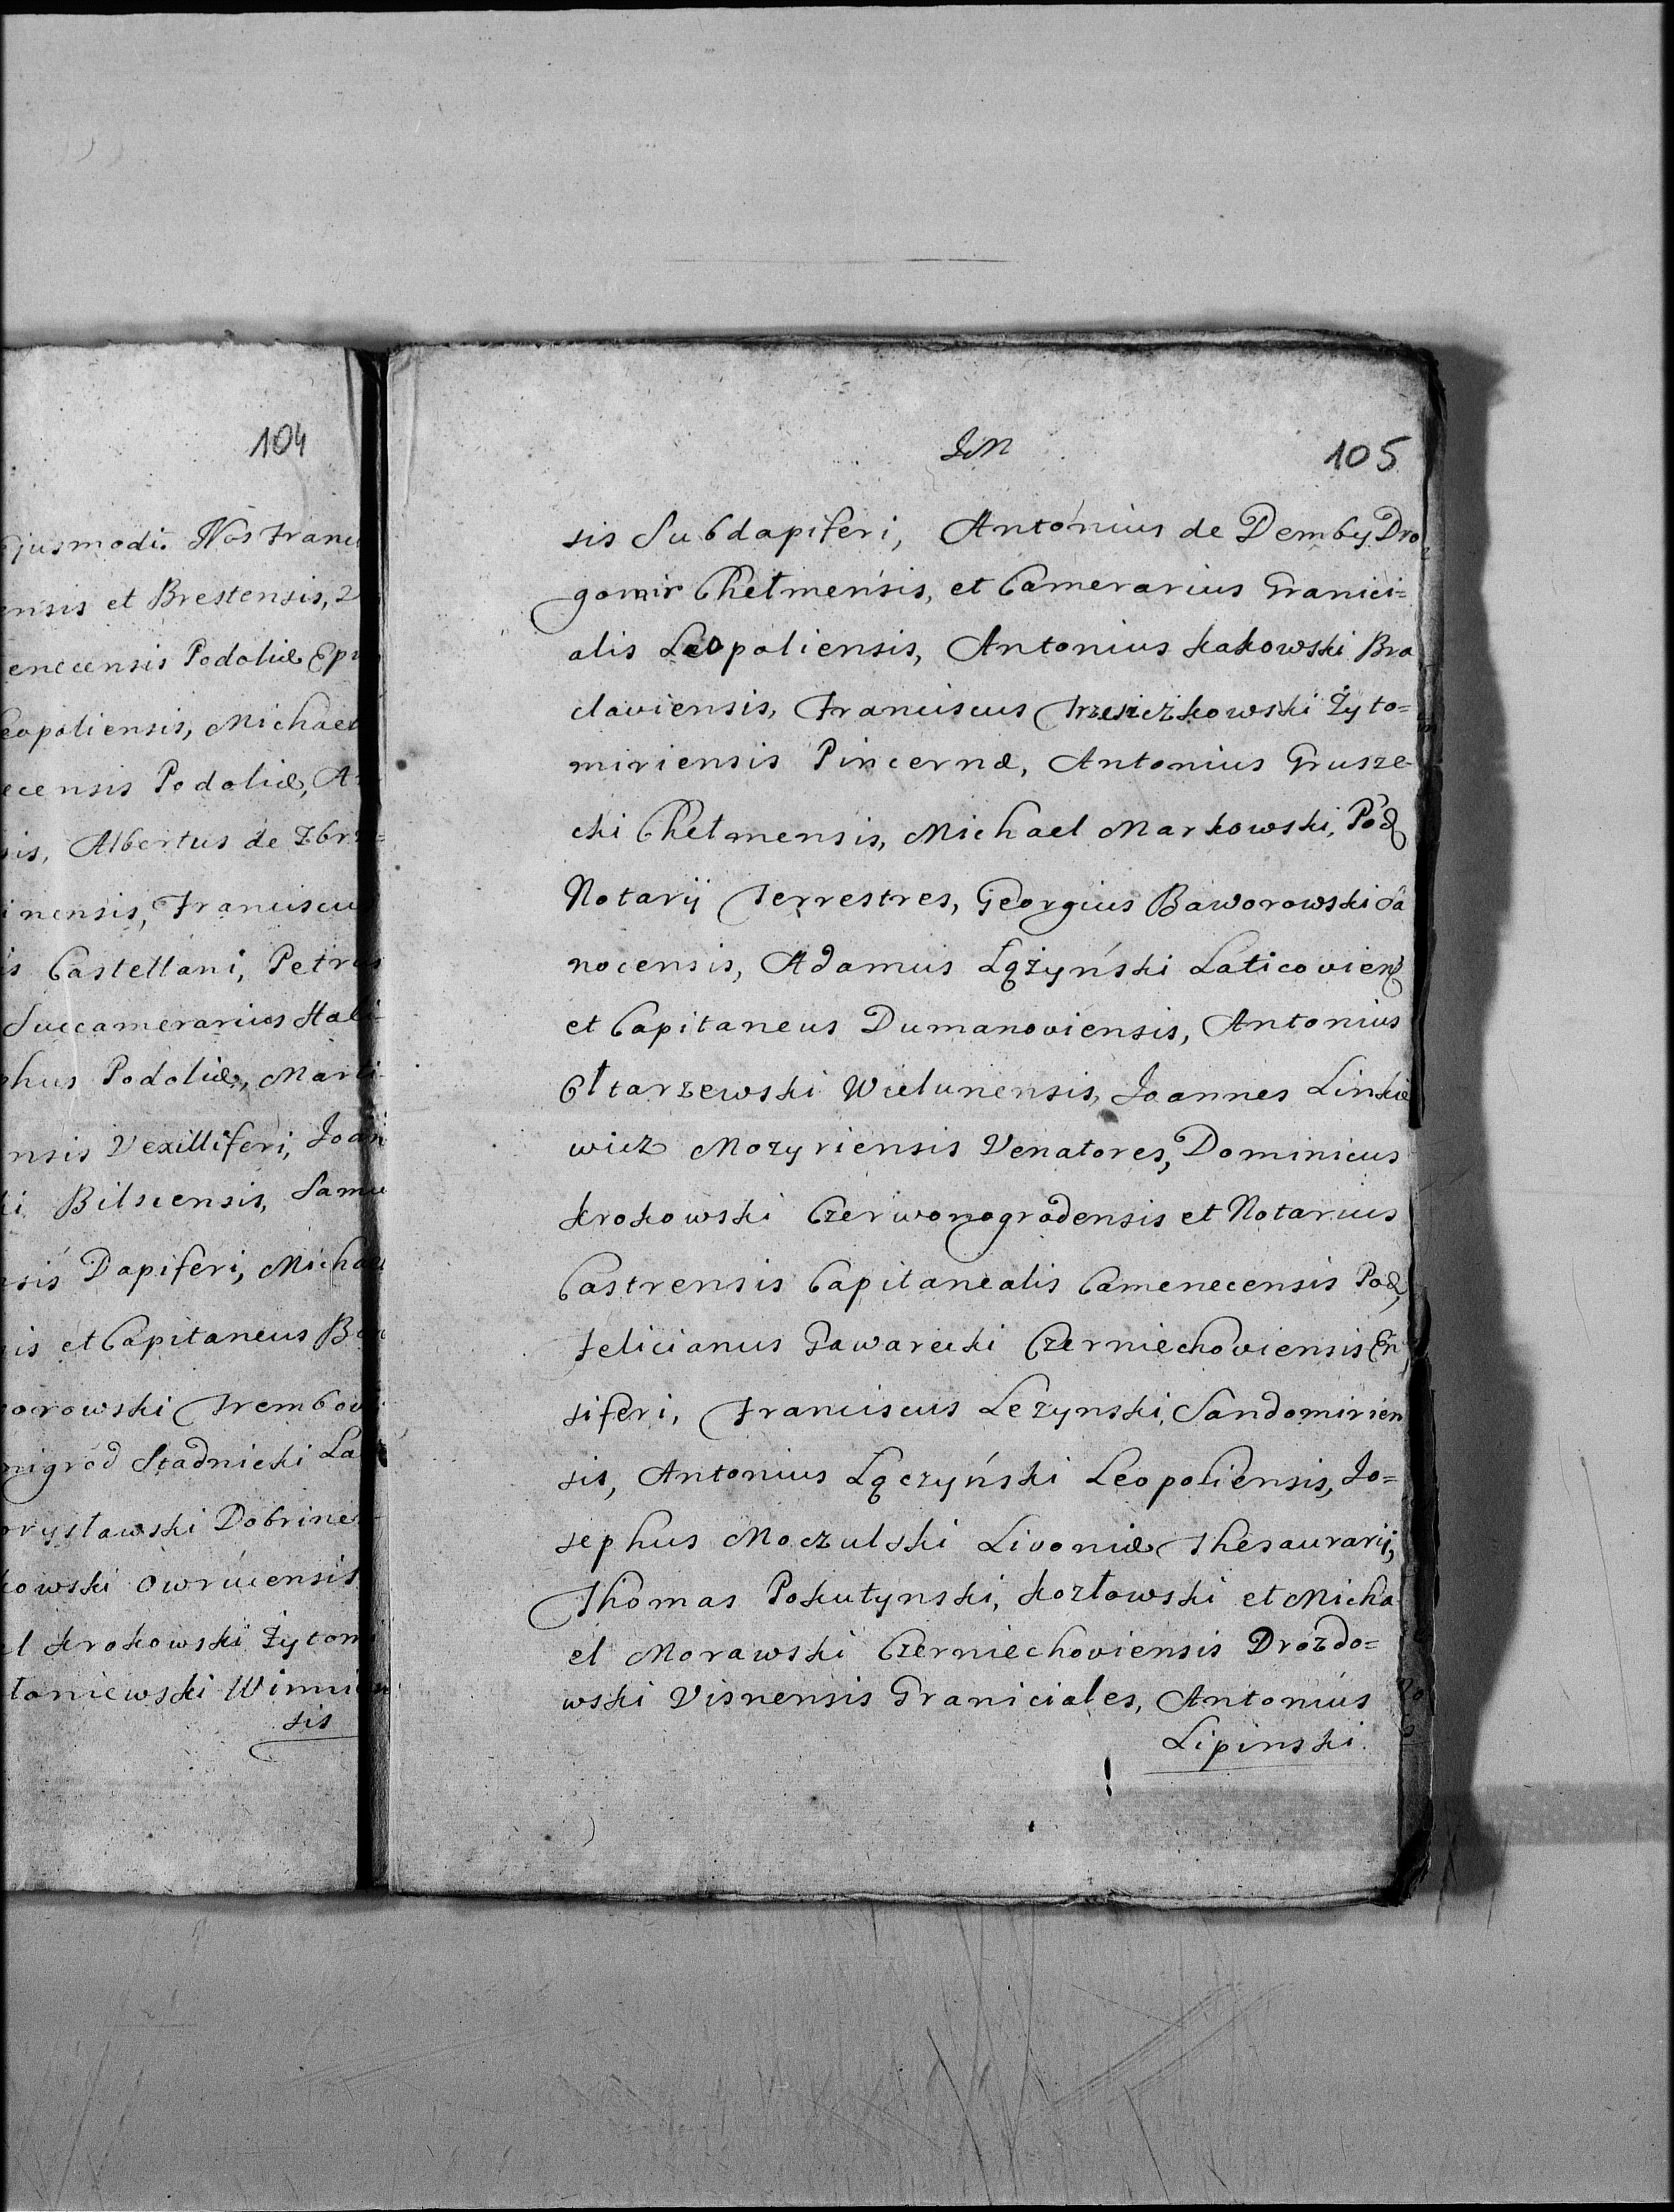 104
Ejusmodi. Nos Franci
ensis et Brestensis,
enecensis Podoliæ Epi
eopoliensis, Michael
ecensis Podoliæ, A
sis, Albertus de Zbr
inensis, Franciscu
is Castellani, Petrus
Succamerarius Hali-
phus Podoliæ, Marti
nsis Vexilliferi, Joan
ki Bilscensis, Samu
nsis Dapiferi, Michae
is et Capitaneus B
orowski Trembow
nigrod Stadnicki La
orysławski Dobrine
kowski Owrucensis
el Krokowski Żytom
toniewski Winnicen
sis
105
sis Subdapiferi, Antonius de Demby Dro
gomir Chełmensis, et Camerarius Granici=
alis Leopoliensis, Antonius Kakowski Bra
claviensis, Franciscus Trzeszczkowski Żyto=
miriensis Pincernæ, Antonius Grusze-
cki Chełmensis, Michael Markowski, Pod
Notarij Terrestres, Georgius Baworowski Sa
nocensis, Adamus Łążyński Laticoviens
et Capitaneus Dumanoviensis, Antonius
Ołtarzewski Wielunensis, Joannes Linkie
wicz Mozyriensis Venatores, Dominicus
Krokowski Czerwonogrodensis et Notarius
Castrensis Capitanealis Camenecensis Pod,
Felicianus Gawarecki Czerniechoviensis En
siferi, Franciscus Lezynski, Sandomirien
sis, Antonius Łączyński Leopoliensis, Jo=
sephus Moczulski Livoniæ Thesaurarij,
Thomas Pokutynski, Kozłowski et Micha
el Morawski Czerniechoviensis Drozdo=
wski Visnensis Graniciales, Antonius
Lipinski.